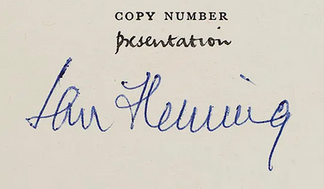 COPY NUMBER
presentation
Ian Fleming